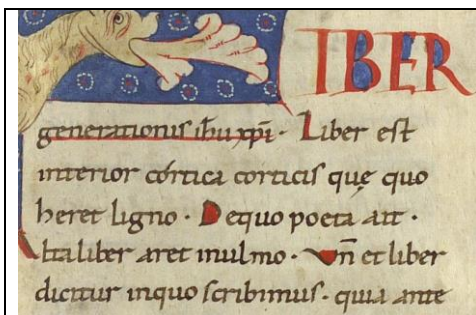 IBER
generationis ihu xpi · Liber est
interior cortica corticis quę quo
heret ligno · De quo poeta ait ·
Alta liber aret in ulmo · Vn̄ et liber
dicitur in quo scribimus · quia ante